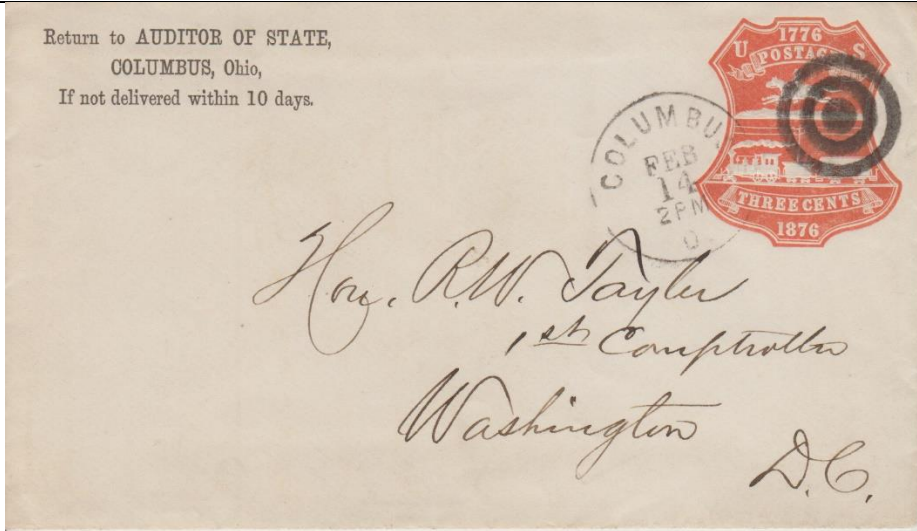 Return to AUDITOR OF STATE,
COLUMBUS, Ohio,
If not delivered within 10 days.
1776
U S
POSTAGE
THREE CENTS
1876
COLUMBU
FEB
14
2 PM
O
Hon. R. W. Tayler
1st Comptroller
Washington
D.C.